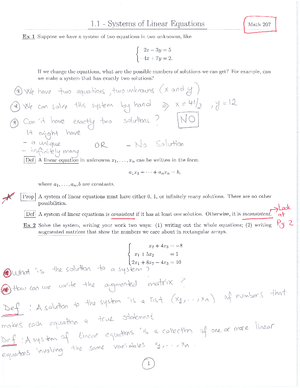 1.1 - Systems of Linear Equations
Math 207
Ex 1 Suppose we have a system of two equations in two unknowns, like
2x − 3y = 5
4x − 7y = 2.
If we change the equations, what are the possible numbers of solutions we can get? For example, can
we make a system that has exactly two solutions?
We have two equations, two unknowns (x and y)
We can solve this system by hand
y = 12
Can it have exactly two solutions? NO
It might have
- a unique OR - No Solution
- infinitely many
Def A linear equation in unknowns x₁, ..., xₙ can be written in the form
a₁x₁ + ⋯ + aₙxₙ = b,
where a₁, ..., aₙ, b are constants.
Prop A system of linear equations must have either 0, 1, or infinitely many solutions. There are no other
possibilities.
Def A system of linear equations is consistent if it has at least one solution. Otherwise, it is inconsistent.
Look at Pg 2
Ex 2 Solve the system, writing your work two ways: (1) writing out the whole equations; (2) writing
augmented matrices that show the numbers we care about in rectangular arrays.
x₂ + 4x₃ = −8
What is the solution to a system?
How can we write the augmented matrix?
Def: A solution to the system is a list (s₁, ..., sₙ) of numbers that
makes each equation a true statement
Def: A system of linear equations is a collection of one or more linear
equations involving the same variables x₁, ..., xₙ
1